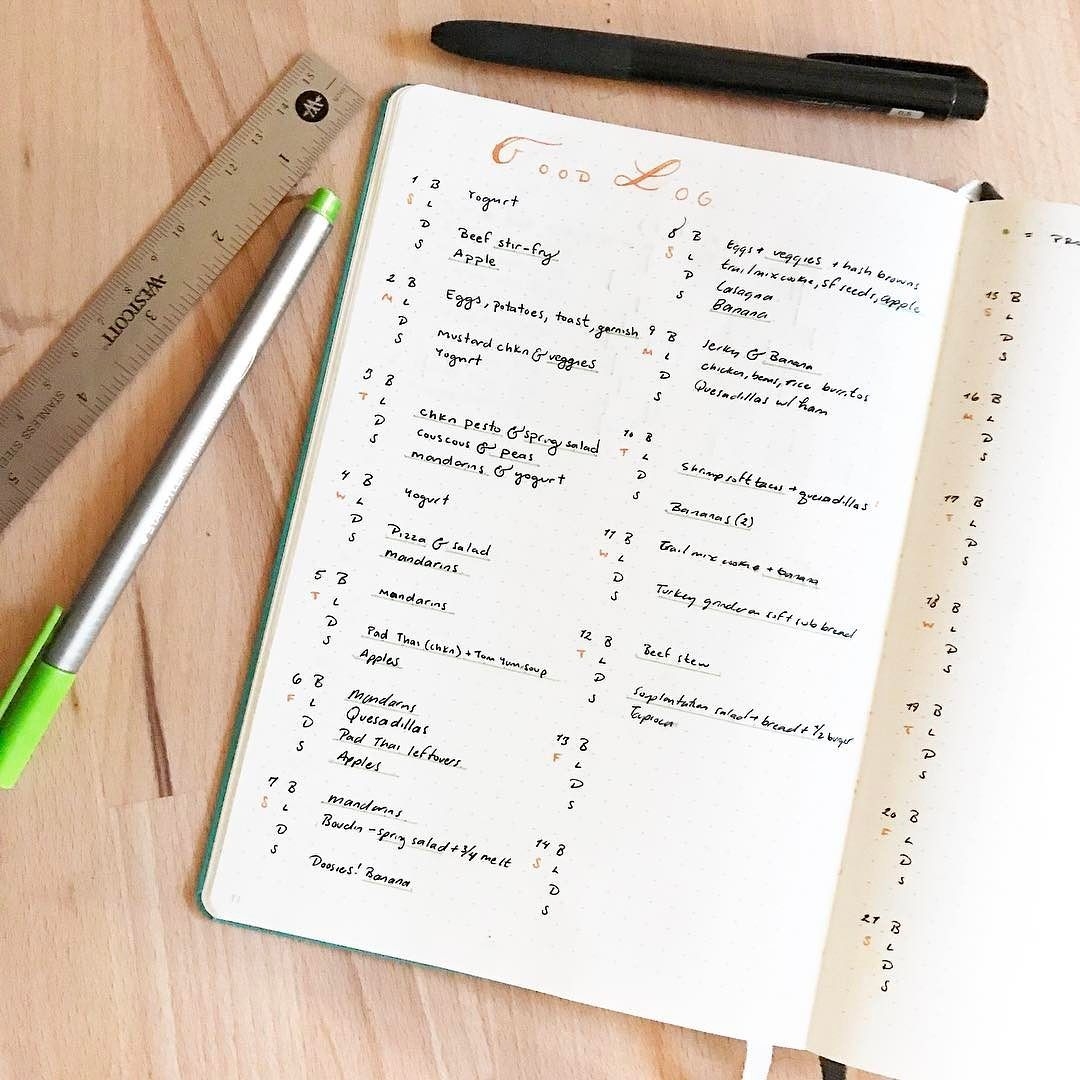 Food Log
1 B Yogurt
S L
D Beef stir-fry
S Apple
2 B Eggs, potatoes, toast, garnish
M L
D Mustard chkn & veggies
S Yogurt
3 B
T L chkn pesto & spring salad
D couscous & peas
S mandarins & yogurt
4 B Yogurt
W L
D Pizza & salad
S mandarins
5 B mandarins
T L
D Pad Thai (chkn) + Tom Yum soup
S Apples
6 B mandarins
F L Quesadillas
D Pad Thai leftovers
S Apples
7 B mandarins
S L Boudin - spring salad + 3/4 melt
D
S Doosies! Banana
8 B Eggs + veggies + hash browns
S L trail mix cookie, SF seeds, apple
D Lasagna
S Banana
9 B Jerky & Banana
M L chicken, beans, rice burritos
D Quesadillas w/ ham
S
10 B
T L Shrimp soft tacos + quesadillas
D
S Bananas (2)
11 B Trail mix cookie + banana
W L
D Turkey grinder on soft sub bread
S
12 B Beef stew
T L
D Souplantation salad + bread + 1/2 burger
S Tapioca
13 B
F L
D
S
14 B
S L
D
S
= PRO
15 B
S L
D
S
16 B
M L
D
S
17 B
T L
D
S
18 B
W L
D
S
19 B
T L
D
S
20 B
F L
D
S
21 B
S L
D
S
WESTCOTT
STAINLESS STEEL
W
1
2
3
4
9
10
11
12
13
14
15